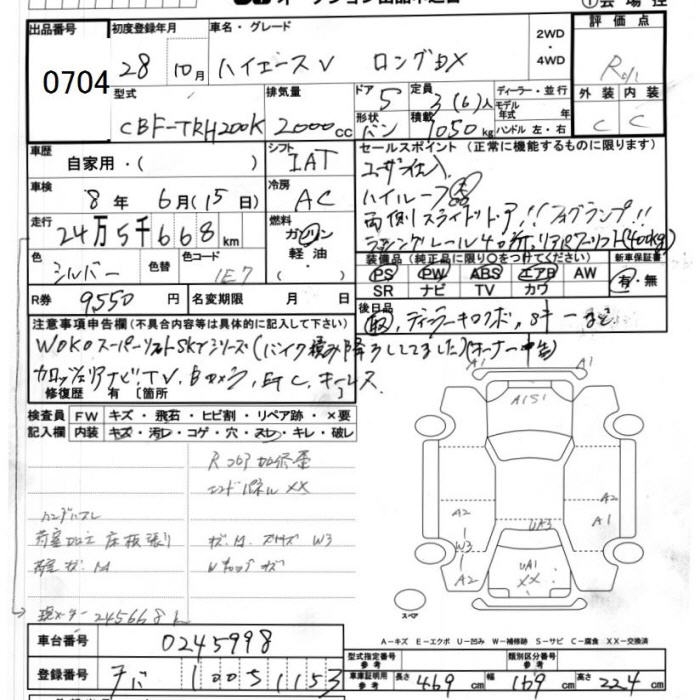 出品番号 初度登録年月 車名・グレード 2WD ・ 4WD 評価点
0704 28 10月 ハイエースV ロングDX
型式 排気量 ドア 定員 ディーラー・並行 外装 内装
CBF-TRH200K 2000cc 5 3(6)人 モデル年式 年 C C
形状 バン 積載 1050kg ハンドル 左・右
車歴 自家用・( ) シフト IAT セールスポイント (正常に機能するものに限ります)
ユーザー仕入
車検 8年 6月(15日) 冷房 AC ハイルーフ
両側スライドドア!! フォグランプ!!
走行 24万5千668km 燃料 ガソリン 軽油・( )
装備品 (純正品に限り○をつけてください) 新車保証書
色 シルバー 色替 色コード 1E7 PS PW ABS エアB AW 有・無
SR ナビ TV カワ
R券 9550円 名変期限 月 日 後日品
注意事項申告欄 (不具合内容等は具体的に記入して下さい)
WOKOスーパーリフトSKYシリーズ(バイク積み降ろししてました)(オーナー申告)
カロッツェリアナビ.TV.Bカメラ.ETC.キーレス
修復歴 有 [箇所 ]
検査員 FW キズ・飛石・ヒビ割・リペア跡・×要
記入欄 内装 キズ・汚レ・コゲ・穴・スレ・キレ・破レ
エンドパネルXX
ハンドルスレ
床板張り W3
現メーター245668k
A1 A1
A1S1
A2 A2
A1
UA3
W3
A2
UA1
XX
スペア
A-キズ E-エクボ U-凹み W-補修跡 S-サビ C-腐食 XX-交換済
車台番号 0245998 型式指定番号 参考 類別区分番号 参考
登録番号 チバ 100 す 1153 車庫証明用 参考 長さ 469cm 幅 169cm 高さ 224cm